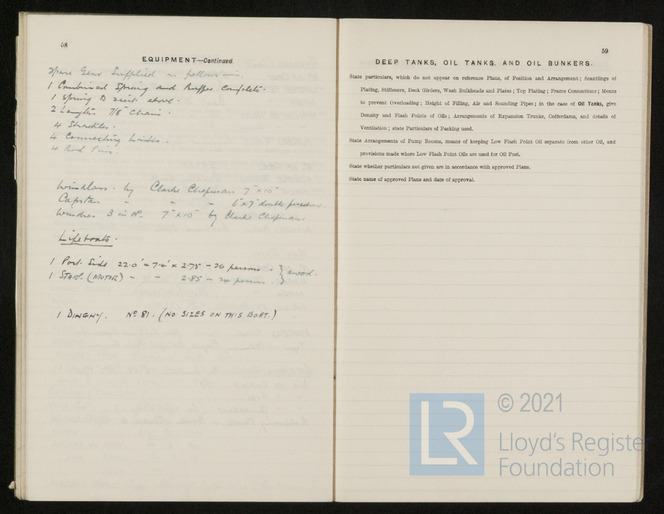 58
EQUIPMENT—Continued.
Spare Gear Supplied as follows:—
1 Combined Spring and Buffer Complete.
1 Spring to suit above.
2 Lengths 7/8" Chain.
4 Shackles.
4 Connecting Links.
4 Rod Pins.
Windlass. by Clarke Chapman 7" x 10"
Capstan " " " 6" x 7" double purchase.
Winches 3 in No. 7" x 10" by Clarke Chapman.
Lifeboats.
1 Port. Side 22.0' x 7.2' x 2.75 - 26 persons } wood.
1 Starb. (MOTOR) - - 2.85 - persons }
1 DINGHY. No 81. (NO SIZES ON THIS BOAT.)
59
DEEP TANKS, OIL TANKS, AND OIL BUNKERS.
State particulars, which do not appear on reference Plans, of Position and Arrangement; Scantlings of
Plating, Stiffeners, Deck Girders, Wash Bulkheads and Plates; Top Plating; Frame Connections; Means
to prevent Overloading; Height of Filling, Air and Sounding Pipes; in the case of Oil Tanks, give
Density and Flash Points of Oils; Arrangements of Expansion Trunks, Cofferdams, and details of
Ventilation; state Particulars of Packing used.
State Arrangements of Pump Rooms, means of keeping Low Flash Point Oil separate from other Oil, and
provisions made where Low Flash Point Oils are used for Oil Fuel.
State whether particulars not given are in accordance with approved Plans.
State name of approved Plans and date of approval.
LR
© 2021
Lloyd's Register
Foundation